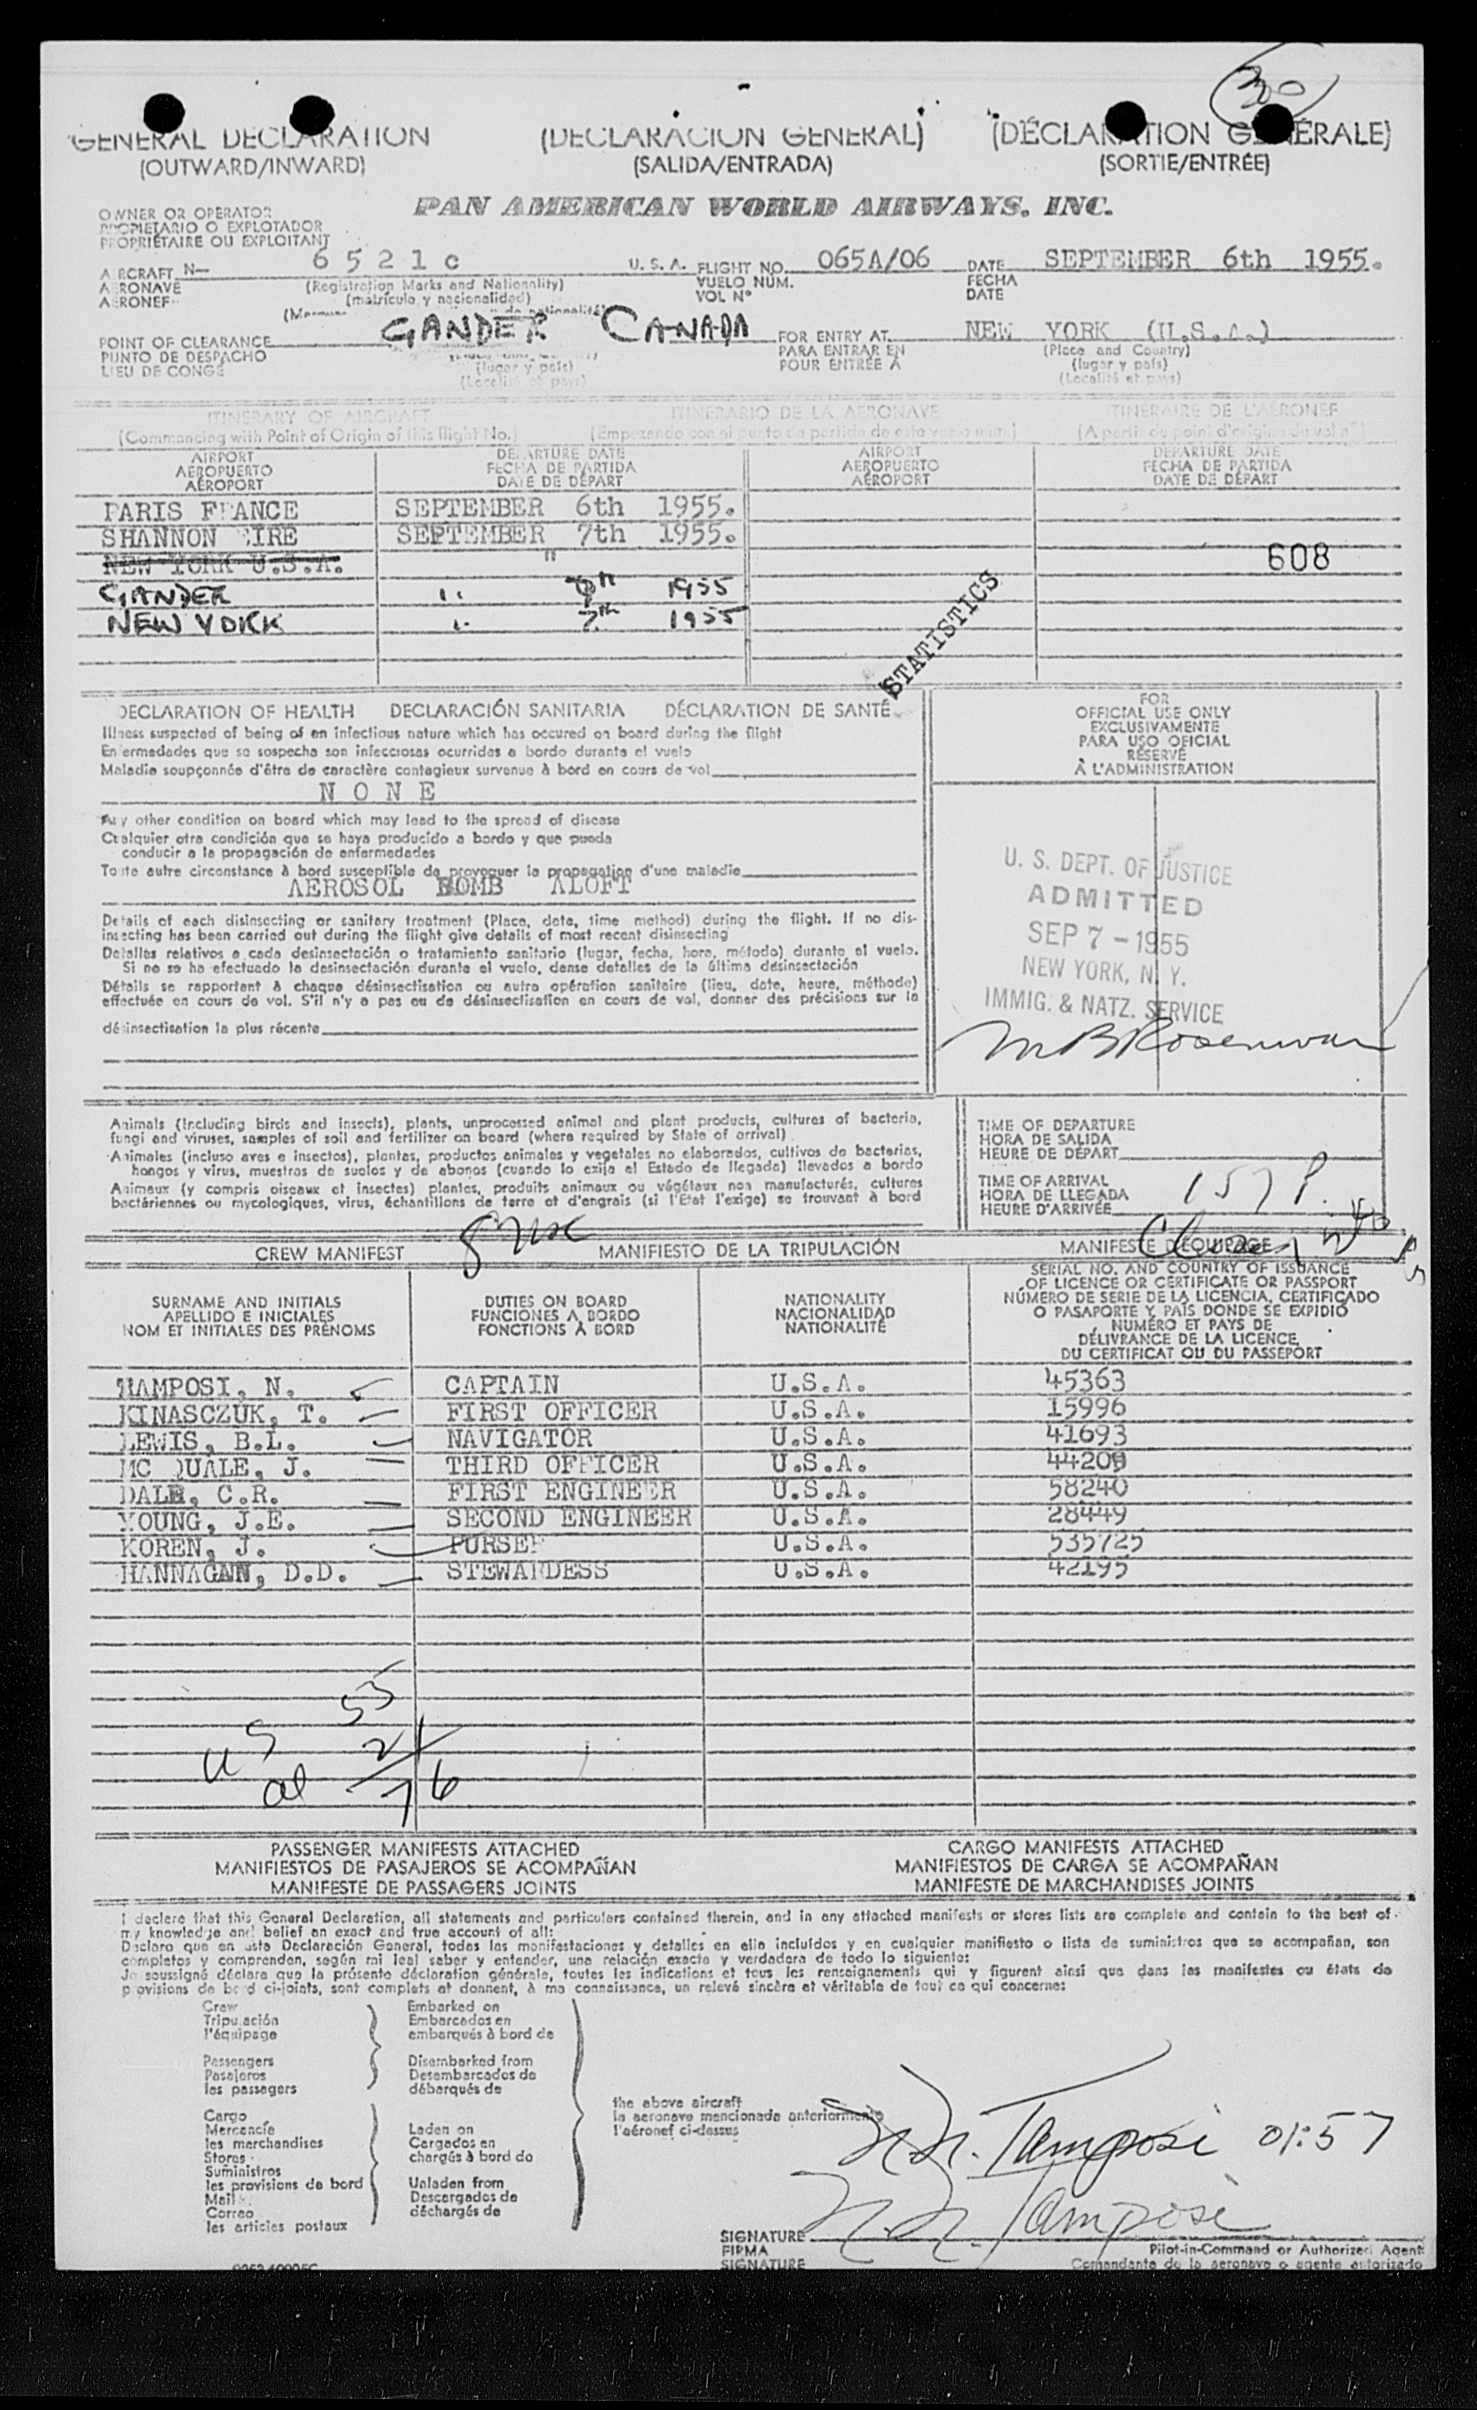 30
GENERAL DECLARATION (DECLARACION GENERAL) (DÉCLARATION GÉNÉRALE)
(OUTWARD/INWARD) (SALIDA/ENTRADA) (SORTIE/ENTRÉE)
PAN AMERICAN WORLD AIRWAYS, INC.
OWNER OR OPERATOR
PROPIETARIO O EXPLOTADOR
PROPRIÉTAIRE OU EXPLOITANT
AIRCRAFT N— 6521c U.S.A. FLIGHT NO. 065A/06 DATE SEPTEMBER 6th 1955.
AERONAVE (Registration Marks and Nationality) VUELO NÚM. FECHA
AÉRONEF (matrículo y nacionalidad) VOL Nº DATE
POINT OF CLEARANCE GANDER CANADA FOR ENTRY AT NEW YORK (U.S.A.)
PUNTO DE DESPACHO (lugar y país) PARA ENTRAR EN (Place and Country)
LIEU DE CONGÉ (Localité et pays) POUR ENTRÉE À (lugar y país)
(Localité et pays)
ITINERARY OF AIRCRAFT ITINERARIO DE LA AERONAVE ITINÉRAIRE DE L'AÉRONEF
(Commencing with Point of Origin of this flight No.) (Empezando con el punto de partida de este vuelo núm) (A partir du point d'origine du vol nº)
AIRPORT DEPARTURE DATE AIRPORT DEPARTURE DATE
AEROPUERTO FECHA DE PARTIDA AEROPUERTO FECHA DE PARTIDA
AÉROPORT DATE DE DÉPART AÉROPORT DATE DE DÉPART
PARIS FRANCE SEPTEMBER 6th 1955.
SHANNON EIRE SEPTEMBER 7th 1955.
NEW YORK U.S.A. " 608
GANDER " 7th 1955
NEW YORK " 7th 1955
STATISTICS
DECLARATION OF HEALTH DECLARACIÓN SANITARIA DÉCLARATION DE SANTÉ
Illness suspected of being of an infectious nature which has occured on board during the flight
Enfermedades que se sospecha son infecciosas ocurridas a bordo durante el vuelo
Maladie soupçonnée d'être de caractère contagieux survenue à bord en cours de vol
NONE
Any other condition on board which may lead to the spread of disease
Cualquier otra condición que se haya producido a bordo y que pueda
conducir a la propagación de enfermedades
Toute autre circonstance à bord susceptible de provoquer la propagation d'une maladie
AEROSOL BOMB ALOFT
Details of each disinsecting or sanitary treatment (Place, date, time method) during the flight. If no dis-
insecting has been carried out during the flight give details of most recent disinsecting
Detalles relativos a cada desinsectación o tratamiento sanitario (lugar, fecha, hora, método) durante el vuelo.
Si no se ha efectuado la desinsectación durante el vuelo, dense detalles de la última desinsectación
Détails se rapportant à chaque désinsectisation ou autre opération sanitaire (lieu, date, heure, méthode)
effectuée en cours de vol. S'il n'y a pas eu de désinsectisation en cours de vol, donner des précisions sur la
désinsectisation la plus récente
FOR
OFFICIAL USE ONLY
EXCLUSIVAMENTE
PARA USO OFICIAL
RÉSERVÉ
À L'ADMINISTRATION
U. S. DEPT. OF JUSTICE
ADMITTED
SEP 7 - 1955
NEW YORK, N. Y.
IMMIG. & NATZ. SERVICE
Animals (Including birds and insects), plants, unprocessed animal and plant products, cultures of bacteria,
fungi and viruses, samples of soil and fertilizer on board (where required by State of arrival)
Animales (incluso aves e insectos), plantas, productos animales y vegetales no elaborados, cultivos de bacterias,
hongos y virus, muestras de suelos y de abonos (cuando lo exija el Estado de llegada) llevados a bordo
Animaux (y compris oiseaux et insectes) plantes, produits animaux ou végétaux non manufacturés, cultures
bactériennes ou mycologiques, virus, échantillons de terre et d'engrais (si l'État l'exige) se trouvant à bord
TIME OF DEPARTURE
HORA DE SALIDA
HEURE DE DÉPART
TIME OF ARRIVAL
HORA DE LLEGADA 157 P.
HEURE D'ARRIVÉE
CREW MANIFEST MANIFIESTO DE LA TRIPULACIÓN MANIFESTE D'ÉQUIPAGE
SURNAME AND INITIALS DUTIES ON BOARD NATIONALITY SERIAL NO. AND COUNTRY OF ISSUANCE
APELLIDO E INICIALES FUNCIONES A BORDO NACIONALIDAD OF LICENCE OR CERTIFICATE OR PASSPORT
NOM ET INITIALES DES PRÉNOMS FONCTIONS À BORD NATIONALITÉ NÚMERO DE SERIE DE LA LICENCIA, CERTIFICADO
O PASAPORTE Y PAÍS DONDE SE EXPIDIÓ
NUMÉRO ET PAYS DE
DÉLIVRANCE DE LA LICENCE,
DU CERTIFICAT OU DU PASSEPORT
TAMPOSI, N. CAPTAIN U.S.A. 45363
KINASCZUK, T. FIRST OFFICER U.S.A. 15996
LEWIS, B.L. NAVIGATOR U.S.A. 41693
MC QUALE, J. THIRD OFFICER U.S.A. 44209
DALE, C.R. FIRST ENGINEER U.S.A. 58240
YOUNG, J.E. SECOND ENGINEER U.S.A. 28449
KOREN, J. PURSER U.S.A. 535725
HANNAGAN, D.D. STEWARDESS U.S.A. 42195
US 55
al 21
76
PASSENGER MANIFESTS ATTACHED CARGO MANIFESTS ATTACHED
MANIFIESTOS DE PASAJEROS SE ACOMPAÑAN MANIFIESTOS DE CARGA SE ACOMPAÑAN
MANIFESTE DE PASSAGERS JOINTS MANIFESTE DE MARCHANDISES JOINTS
I declare that this General Declaration, all statements and particulars contained therein, and in any attached manifests or stores lists are complete and contain to the best of
my knowledge and belief an exact and true account of all:
Declaro que en esta Declaración General, todas las manifestaciones y detalles en ella incluídos y en cualquier manifiesto o lista de suministros que se acompañan, son
completos y comprenden, según mi leal saber y entender, una relación exacta y verdadera de todo lo siguiente:
Je soussigné déclare que la présente déclaration générale, toutes les indications et tous les renseignements qui y figurent ainsi que dans les manifestes ou états de
provisions de bord ci-joints, sont complets et donnent, à ma connaissance, un relevé sincère et véritable de tout ce qui concerne:
Crew Embarked on
Tripulación Embarcados en
l'équipage embarqués à bord de
Passengers Disembarked from
Pasajeros Desembarcados de
les passagers débarqués de
the above aircraft
la aeronave mencionada anteriormente
l'aéronef ci-dessus
Cargo
Mercancía Laden on
les marchandises Cargados en
Stores chargés à bord de
Suministros
les provisions de bord Unladen from
Mail Descargados de
Correo déchargés de
les articles postaux
N. N. Tamposi 01:57
N. N. Tamposi
SIGNATURE Pilot-in-Command or Authorized Agent
FIRMA Comandante de la aeronave o agente autorizado
SIGNATURE